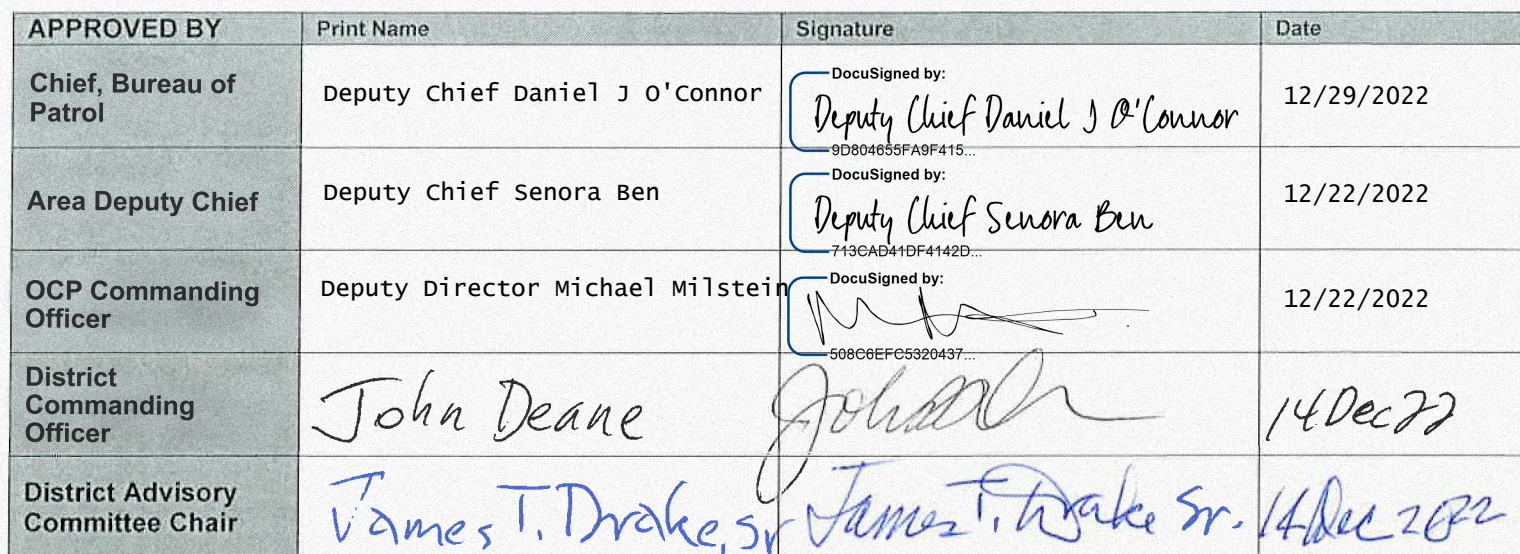 APPROVED BY Print Name Signature Date
Chief, Bureau of
Patrol
Deputy Chief Daniel J O'Connor
DocuSigned by:
Deputy Chief Daniel J O'Connor
9D804655FA9F415...
12/29/2022
Area Deputy Chief
Deputy Chief Senora Ben
DocuSigned by:
Deputy Chief Senora Ben
713CAD41DF4142D...
12/22/2022
OCP Commanding
Officer
Deputy Director Michael Milstein
DocuSigned by:
508C6EFC5320437...
12/22/2022
District
Commanding
Officer
John Deane
14 Dec 22
District Advisory
Committee Chair
James T. Drake, Sr
James T. Drake Sr.
14 Dec 2022